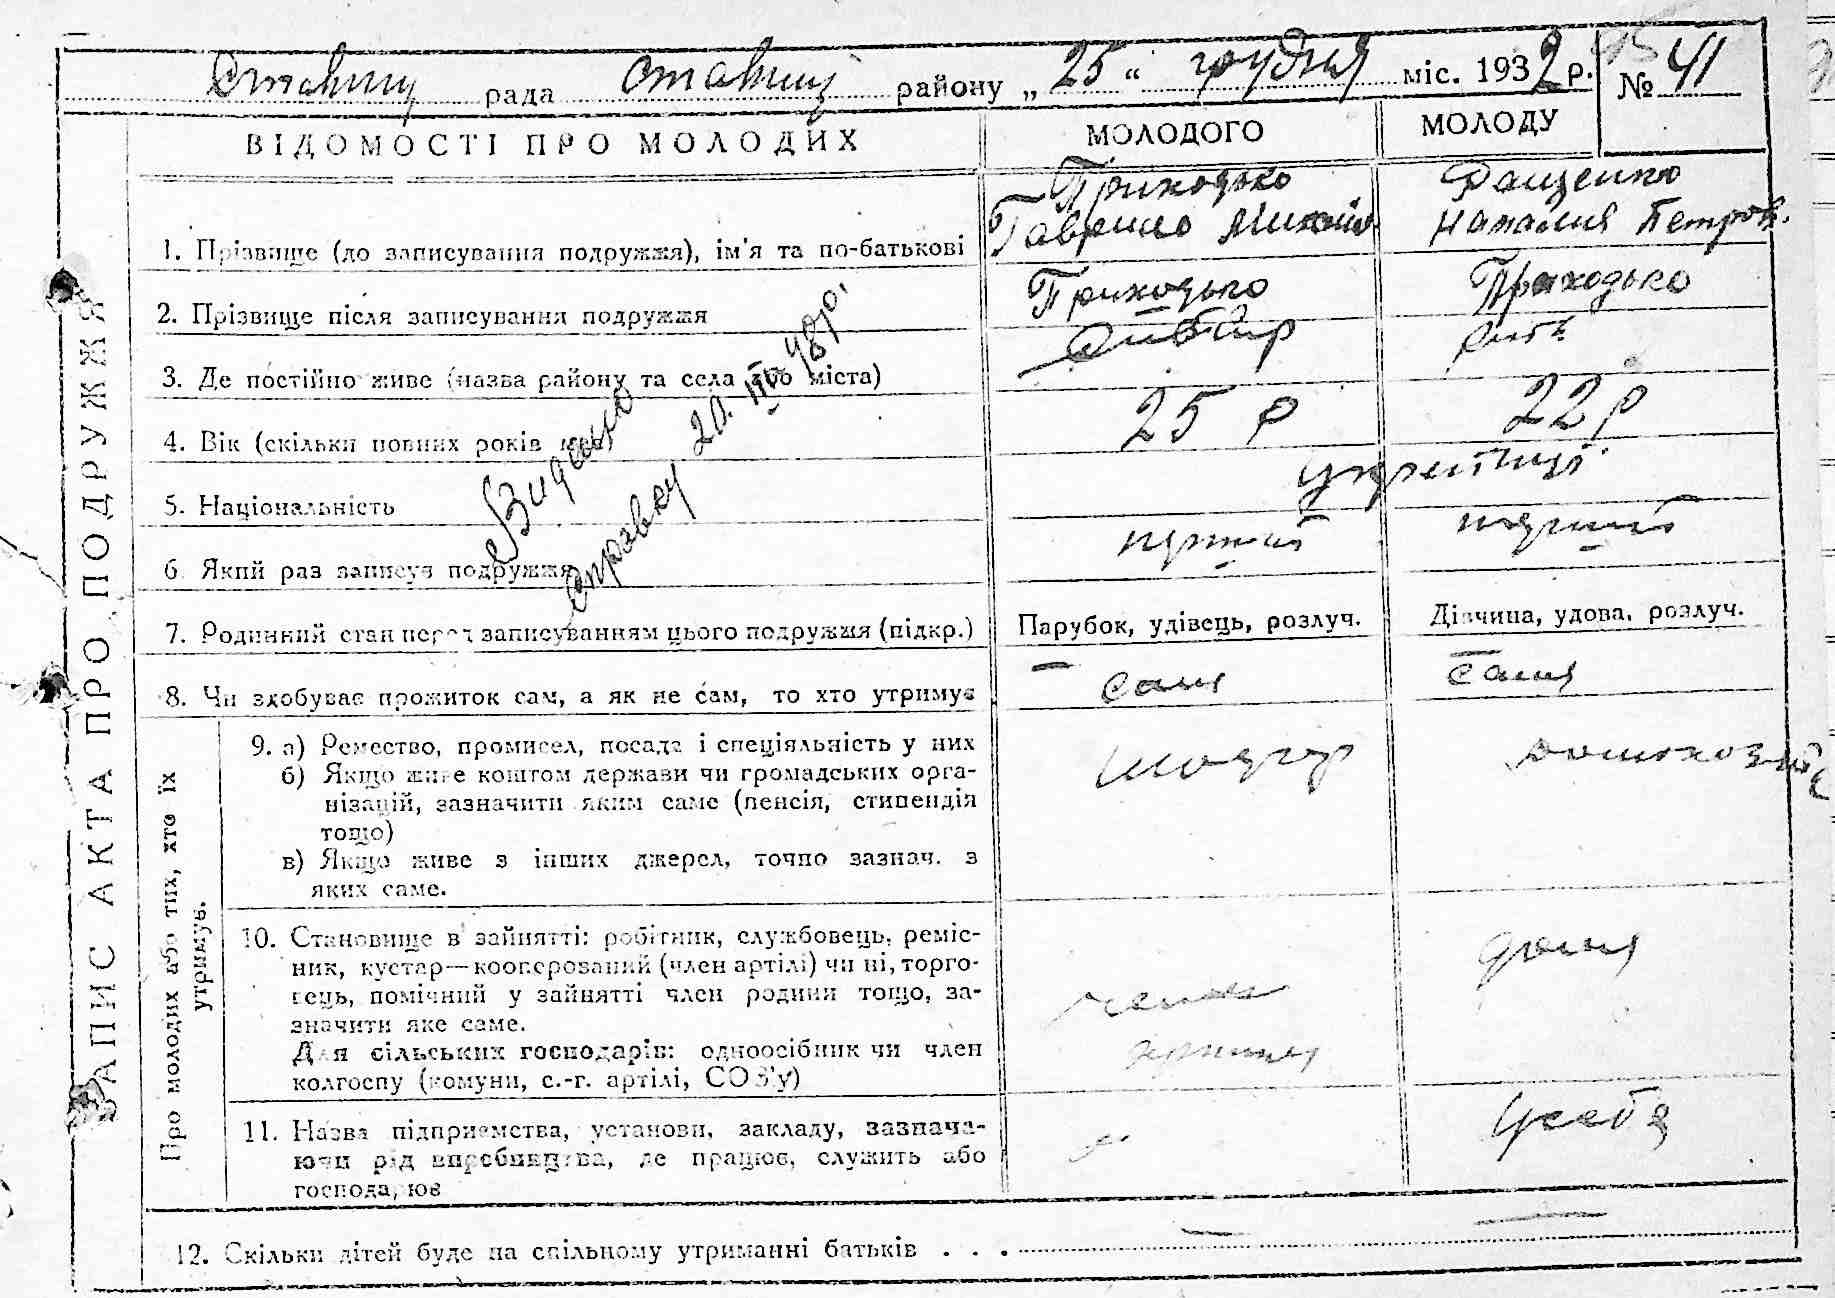 рада району „ 25 “ грудня міс. 1932 р. № 41
ВІДОМОСТІ ПРО МОЛОДИХ МОЛОДОГО МОЛОДУ
Приходько
Гаврило Михайл. Наталия Петров.
1. Прізвище (до записування подружжя), ім'я та по-батькові
Приходько Приходько
2. Прізвище після записування подружжя
3. Де постійно живе (назва району та села або міста)
25 р 22 р
4. Вік (скільки повних років має)
українці
5. Національність
перший перший
6. Який раз записує подружжя
Видано
справку 20. III 48 р.
7. Родинний стан перед записуванням цього подружжя (підкр.) Парубок, удівець, розлуч. Дівчина, удова, розлуч.
сам сама
8. Чи здобуває прожиток сам, а як не сам, то хто утримує
9. а) Ремество, промисел, посада і спеціяльність у них
б) Якщо живе коштом держави чи громадських орга-
нізацій, зазначити яким саме (пенсія, стипендія
тощо)
в) Якщо живе з інших джерел, точно зазнач. з
яких саме.
10. Становище в зайнятті: робітник, службовець, реміс-
ник, кустар—кооперований (член артілі) чи ні, торго-
вець, помічний у зайнятті член родини тощо, за-
значити яке саме.
Для сільських господарів: одноосібник чи член
колгоспу (комуни, с.-г. артілі, СОЗ'у)
дома
член
11. Назва підприємства, установи, закладу, зазнача-
ючи рід виробництва, де працює, служить або
господарює
у себя
12. Скільки дітей буде на спільному утриманні батьків . . .
ЗАПИС АКТА ПРО ПОДРУЖЖЯ
Про молодих або тих, хто їх
утримує.